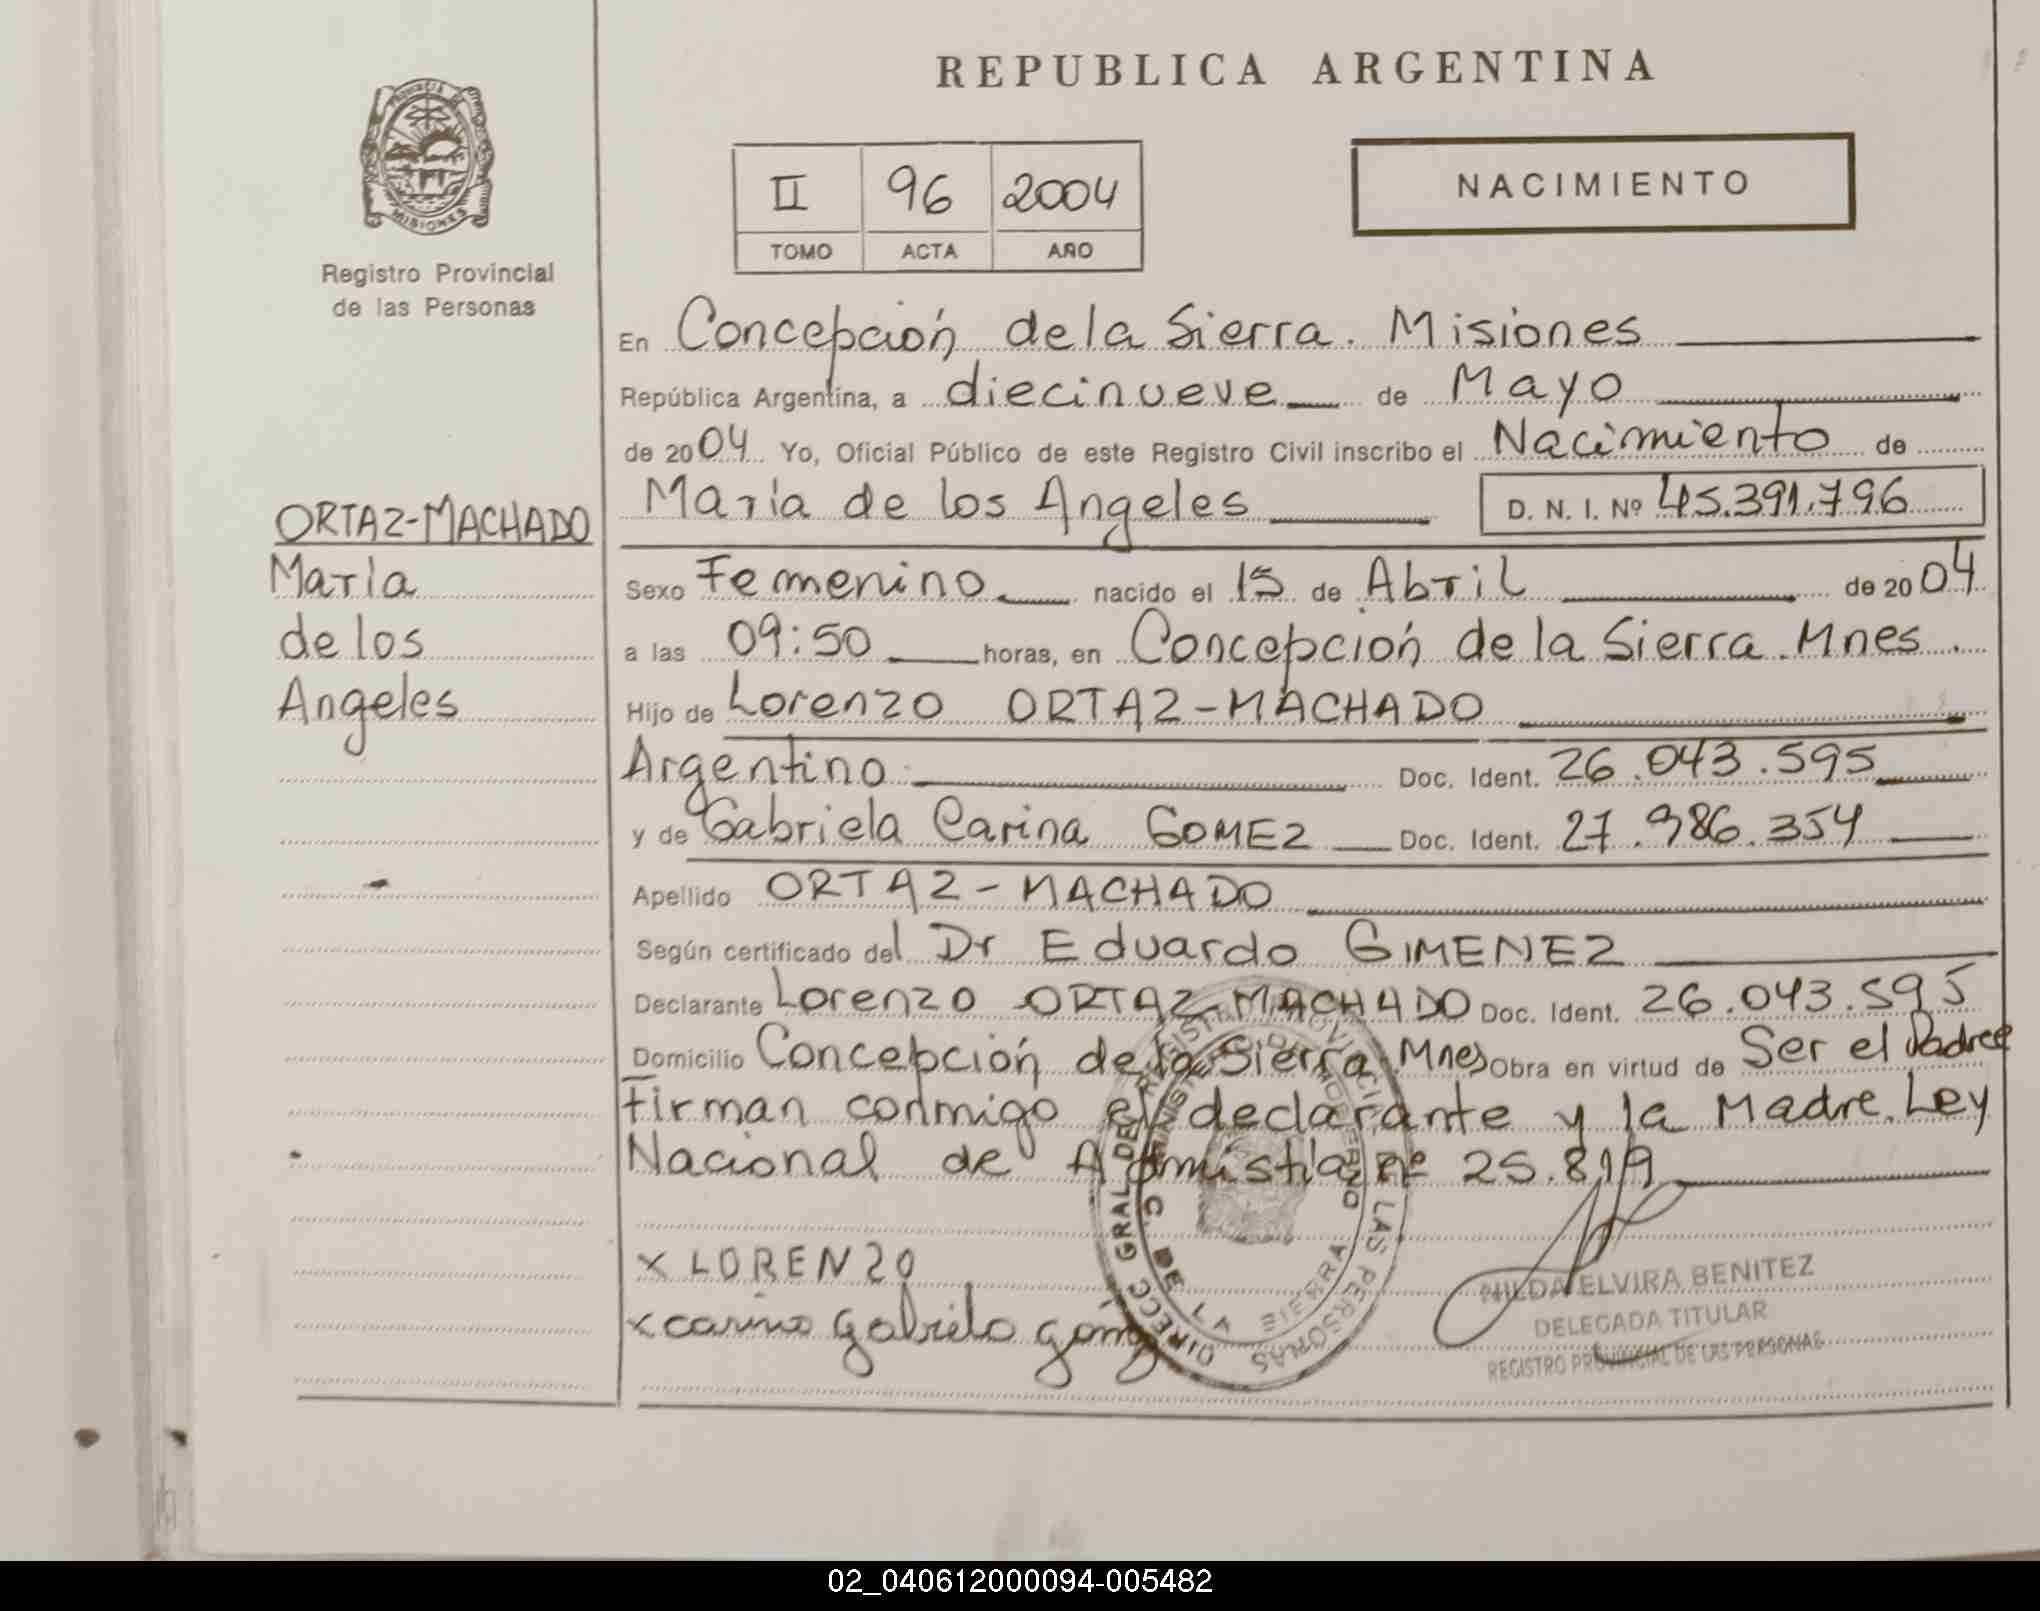 REPUBLICA ARGENTINA
PROVINCIA DE MISIONES
Registro Provincial
de las Personas
II 96 2004
TOMO ACTA AÑO
NACIMIENTO
En Concepción de la Sierra. Misiones
República Argentina, a diecinueve de Mayo
de 2004 Yo, Oficial Público de este Registro Civil inscribo el Nacimiento de
María de los Angeles D. N. I. Nº 45.391.796
ORTAZ-MACHADO
María
de los
Angeles
Sexo Femenino nacido el 15 de Abril de 2004
a las 09:50 horas, en Concepción de la Sierra. Mnes.
Hijo de Lorenzo ORTAZ-MACHADO
Argentino Doc. Ident. 26.043.595
y de Gabriela Carina GOMEZ Doc. Ident. 27.986.354
Apellido ORTAZ-MACHADO
Según certificado del Dr Eduardo GIMENEZ
Declarante Lorenzo ORTAZ-MACHADO Doc. Ident. 26.043.595
Domicilio Concepción de la Sierra. Mnes Obra en virtud de Ser el Padre
Firman conmigo el declarante y la Madre. Ley
Nacional de Admistía nº 25.819
x LORENZO
x carina gabriela gomez
DIRECC GRAL DEL REGISTRO PROVINCIAL DE LAS PERSONAS
MINISTERIO DE GOBIERNO
C. DE LA SIERRA
NILDA ELVIRA BENITEZ
DELEGADA TITULAR
REGISTRO PROVINCIAL DE LAS PERSONAS
02_040612000094-005482